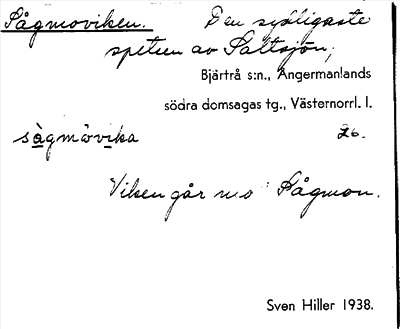 Sågmoviken. Den sydligaste
spetsen av Saltsjön,
Bjärtrå s:n., Ångermanlands
södra domsagas tg., Västernorrl. l.
sågmòvika 26.
Viken går mo Sågmon.
Sven Hiller 1938.